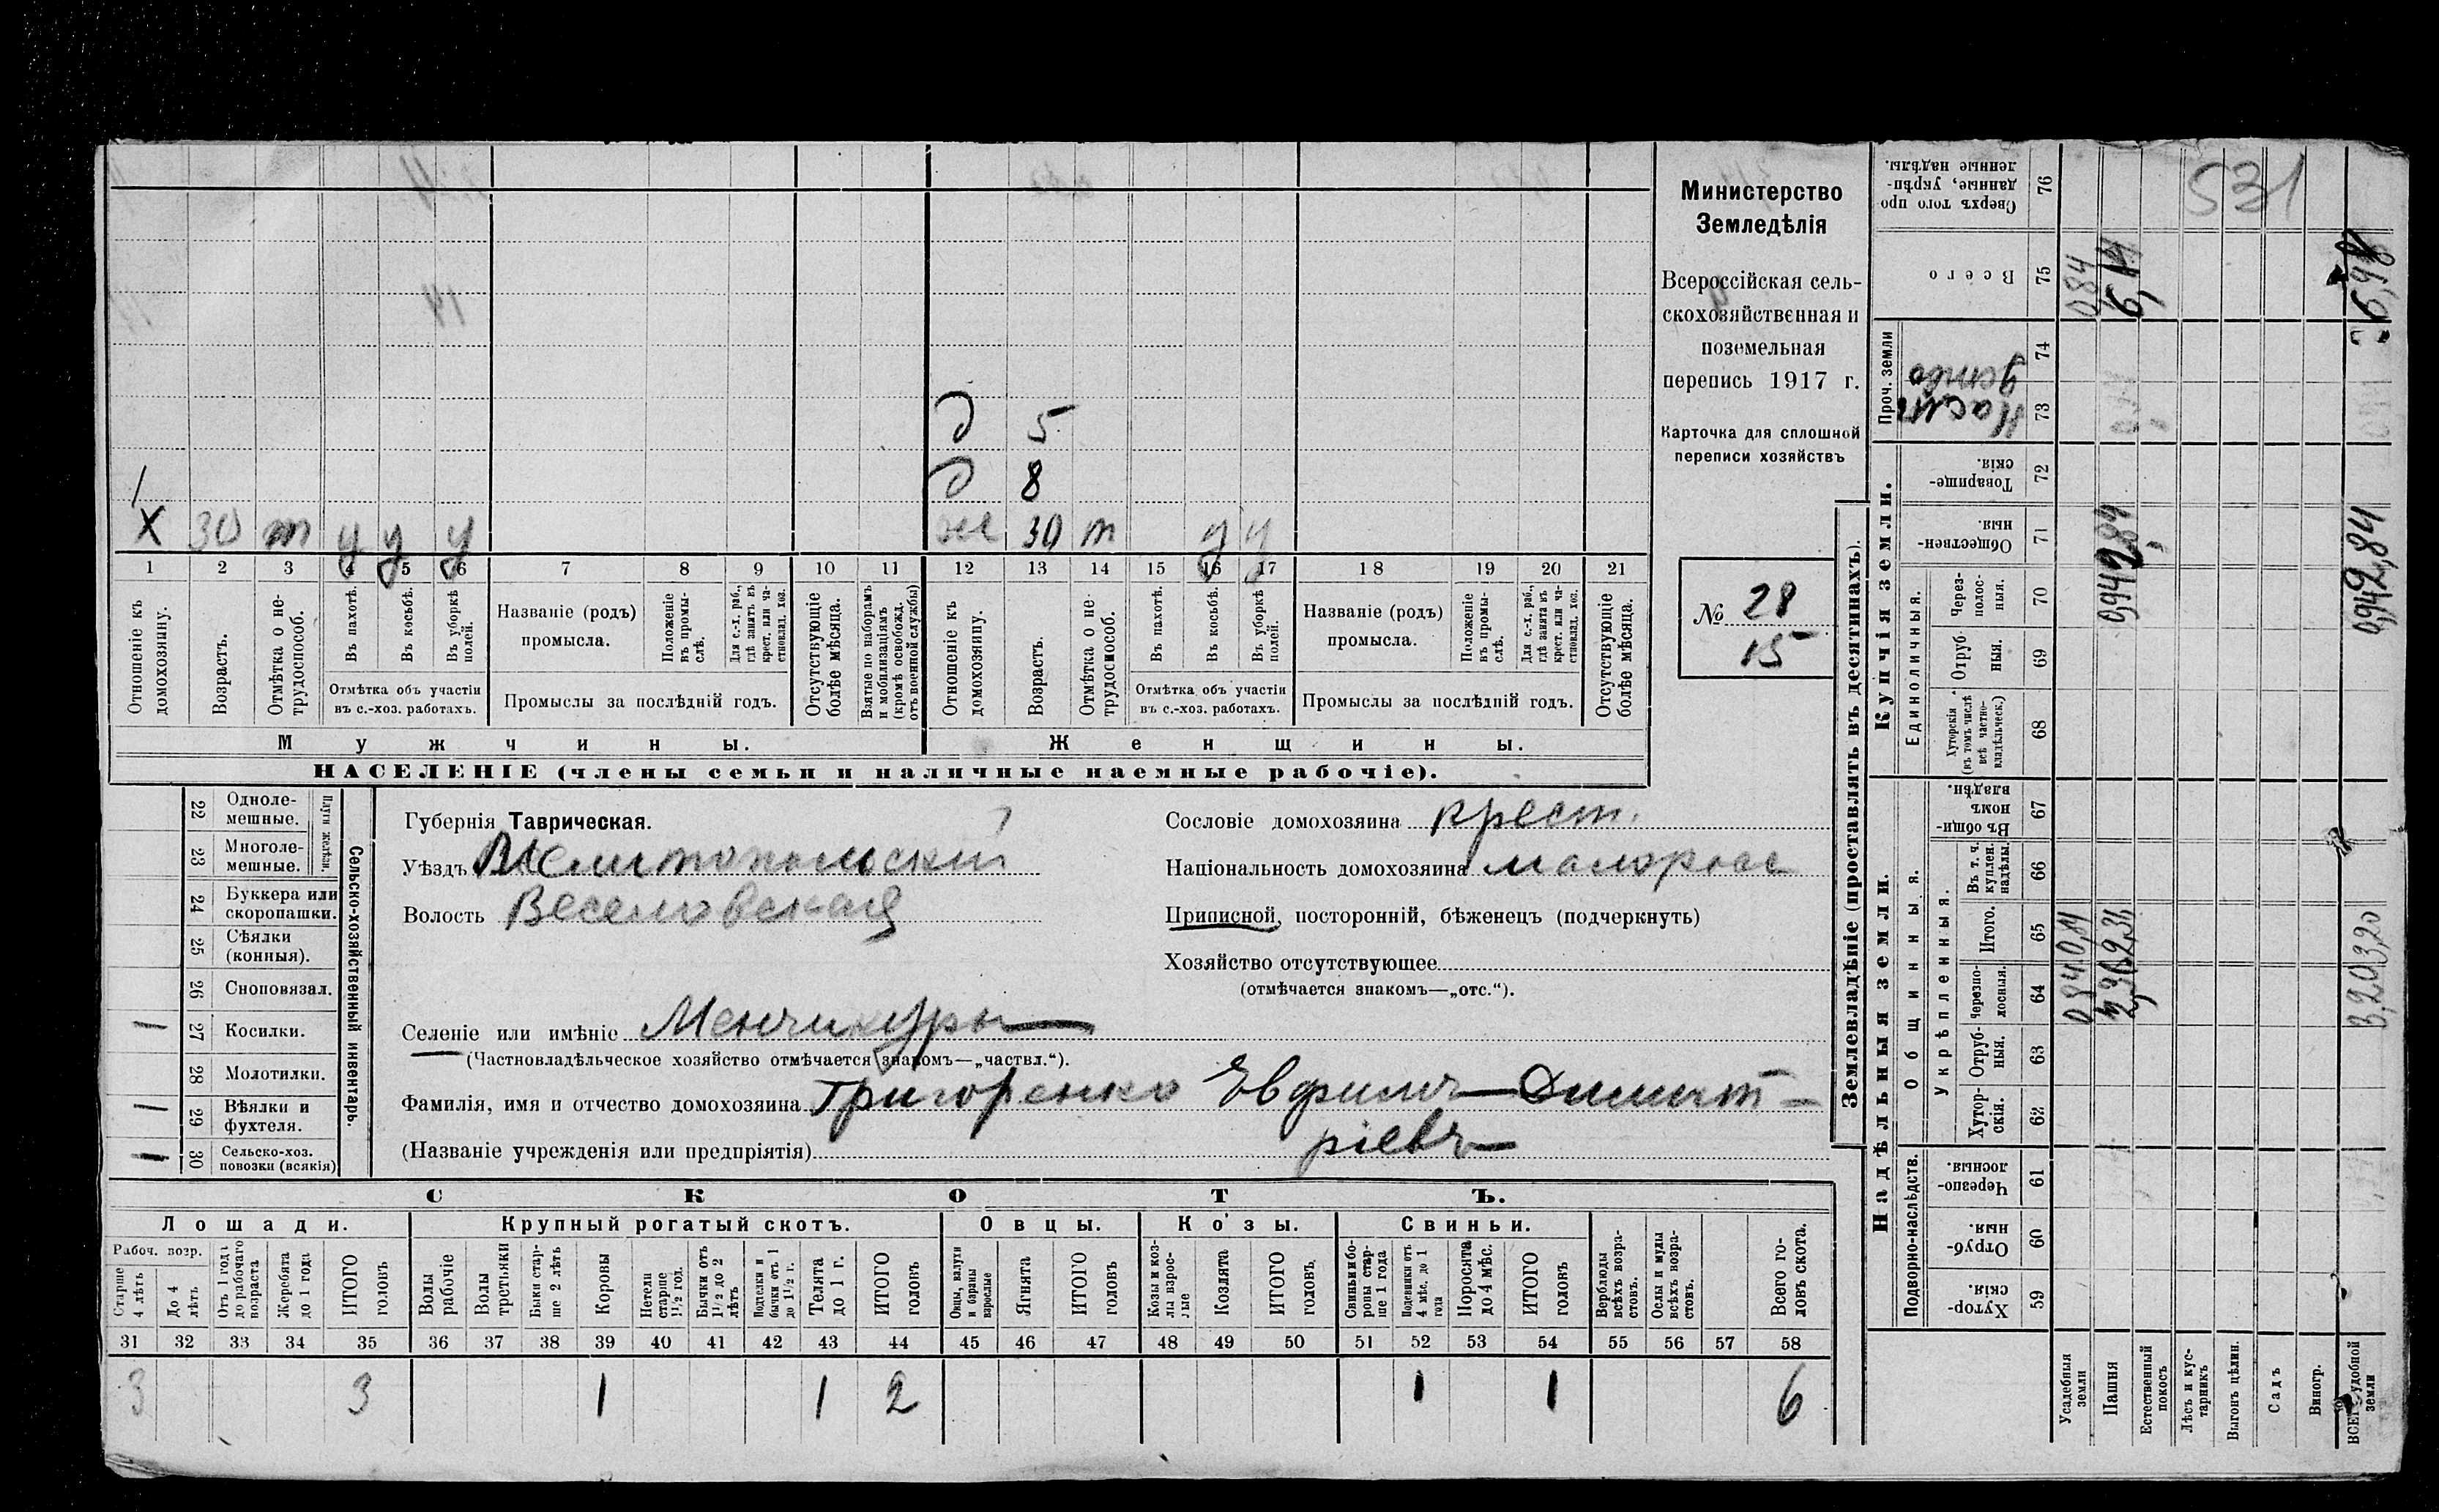 Министерство
Земледѣлія
Всероссійская сель-
скохозяйственная и
поземельная
перепись 1917 г.
Карточка для сплошной
переписи хозяйствъ
№ 28
15
д 5
д 8
1
х 30 т у у у
ж 30 т у у
1 2 3 4 5 6 7 8 9 10 11 12 13 14 15 16 17 18 19 20 21
Отношеніе къ домохозяину.
Возрастъ.
Отмѣтка о не-трудоспособ.
Въ пахотѣ.
Въ косьбѣ.
Въ уборкѣ полей.
Отмѣтка объ участіи
въ с.-хоз. работахъ.
Названіе (родъ)
промысла.
Положеніе въ промы-слѣ.
Для с.-х. раб., гдѣ занятъ въ крест. или ча-стновлад. хоз.
Промыслы за послѣдній годъ.
Отсутствующіе болѣе мѣсяца.
Взятые по наборамъ и мобилизаціямъ (кромѣ освобожд. отъ военной службы)
Отношеніе къ домохозяину.
Возрастъ.
Отмѣтка о не-трудоспособ.
Въ пахотѣ.
Въ косьбѣ.
Въ уборкѣ полей.
Отмѣтка объ участіи
въ с.-хоз. работахъ.
Названіе (родъ)
промысла.
Положеніе въ промы-слѣ.
Для с.-х. раб., гдѣ занята въ крест. или ча-стновлад. хоз.
Промыслы за послѣдній годъ.
Отсутствующіе болѣе мѣсяца.
Мужчины.
Женщины.
НАСЕЛЕНІЕ (члены семьи и наличные наемные рабочіе).
Сельско-хозяйственный инвентарь.
Плуги желѣзн.
22 Одноле-мешные.
23 Многоле-мешные.
24 Буккера или скоропашки.
25 Сѣялки (конныя).
26 Сноповязал.
27 Косилки. 1
28 Молотилки.
29 Вѣялки и фухтеля. 1
30 Сельско-хоз. повозки (всякія) 1
Губернія Таврическая.
Уѣздъ Мелитопольскій
Волость Веселовская
Селеніе или имѣніе Менчикуры
(Частновладѣльческое хозяйство отмѣчается знакомъ—„частвл.“).
Фамилія, имя и отчество домохозяина Григоренко Евфимъ Димит-
ріевъ
(Названіе учрежденія или предпріятія)
Сословіе домохозяина крест.
Національность домохозяина малоросс
Приписной, посторонній, бѣженецъ (подчеркнуть)
Хозяйство отсутствующее
(отмѣчается знакомъ—„отс.“).
СКОТЪ.
Лошади.
Крупный рогатый скотъ.
Овцы.
Козы.
Свиньи.
Рабоч. возр.
Старше 4 лѣтъ
До 4 лѣтъ
Отъ 1 года до рабочаго возраста
Жеребята до 1 года
ИТОГО головъ
Волы рабочіе
Волы третьяки
Быки стар-ше 2 лѣтъ
Коровы
Нетели старше 1 1/2 год.
Бычки отъ 1 1/2 до 2 лѣтъ
Подтелки и бычки отъ 1 до 1 1/2 г.
Телята до 1 г.
ИТОГО головъ
Овцы, валухи и бараны взрослые
Ягнята
ИТОГО головъ
Козы и коз-лы взрос-лые
Козлята
ИТОГО головъ
Свиньи и бо-ровы стар-ше 1 года
Подсвинки отъ 4 мѣс. до 1 года
Поросята до 4 мѣс.
ИТОГО головъ
Верблюды всѣхъ возра-стовъ.
Ослы и мулы всѣхъ возра-стовъ.
Всего го-ловъ скота.
31 32 33 34 35 36 37 38 39 40 41 42 43 44 45 46 47 48 49 50 51 52 53 54 55 56 57 58
3 3 1 1 2 1 1 6
Землевладѣніе (проставлять въ десятинахъ).
Надѣльныя земли.
Купчія земли.
Проч. земли
Подворно-наслѣдств.
Общинныя.
Укрѣпленныя.
Единоличныя.
Хутор-скія. 59
Отруб-ныя. 60
Черезпо-лосныя. 61
Хутор-скія. 62
Отруб-ныя. 63
Черезпо-лосныя. 64
Итого. 65
Въ т. ч. куплен. надѣлы. 66
Въ общи-номъ владѣн. 67
Хуторскія (въ томъ числѣ всѣ частно-владѣльческ.) 68
Отруб-ныя. 69
Через-полос-ныя. 70
Обществен-ныя. 71
Товарище-скія. 72
73
74
Всего 75
Сверхъ того про-данные, укрѣп-ленные надѣлы. 76
Усадебныя земли
Пашня
Естественный покосъ
Лѣсъ и кус-тарникъ
Выгонъ цѣлин.
Садъ
Виногр.
ВСЕГО удобной земли
531